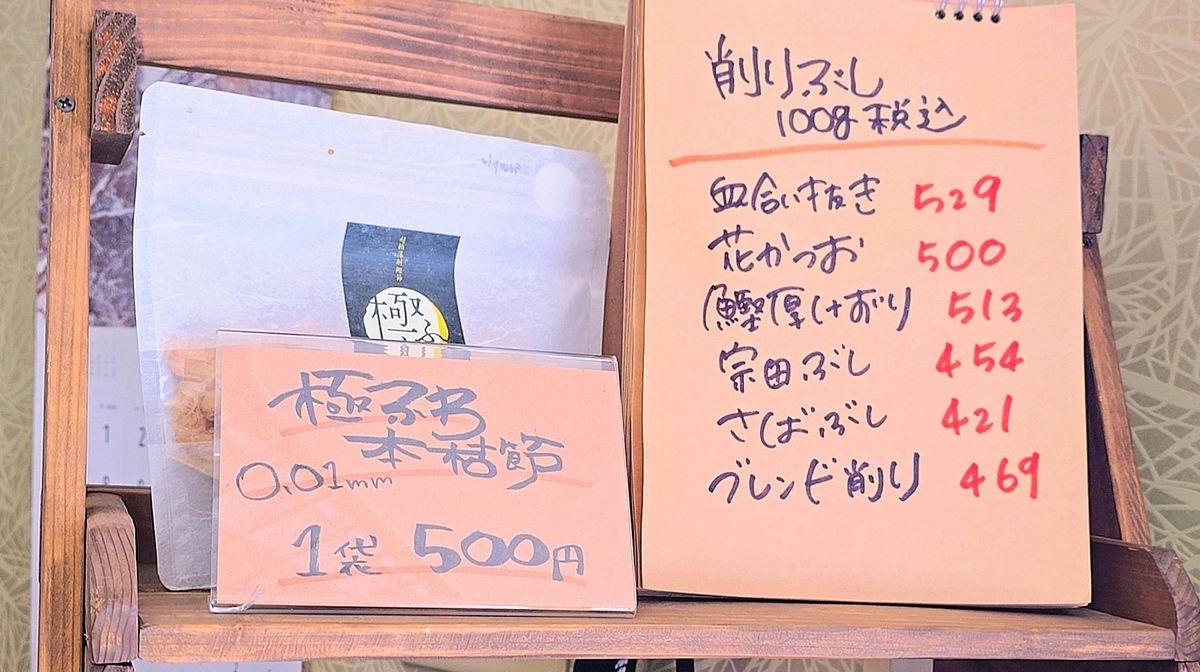 削りぶし
100g税込
血合い抜き 529
花かつお 500
鰹厚けずり 513
宗田ぶし 454
さばぶし 421
ブレンド削り 469
極ふわ
本枯節
0.01mm
1袋 500円
極ふ
1 2